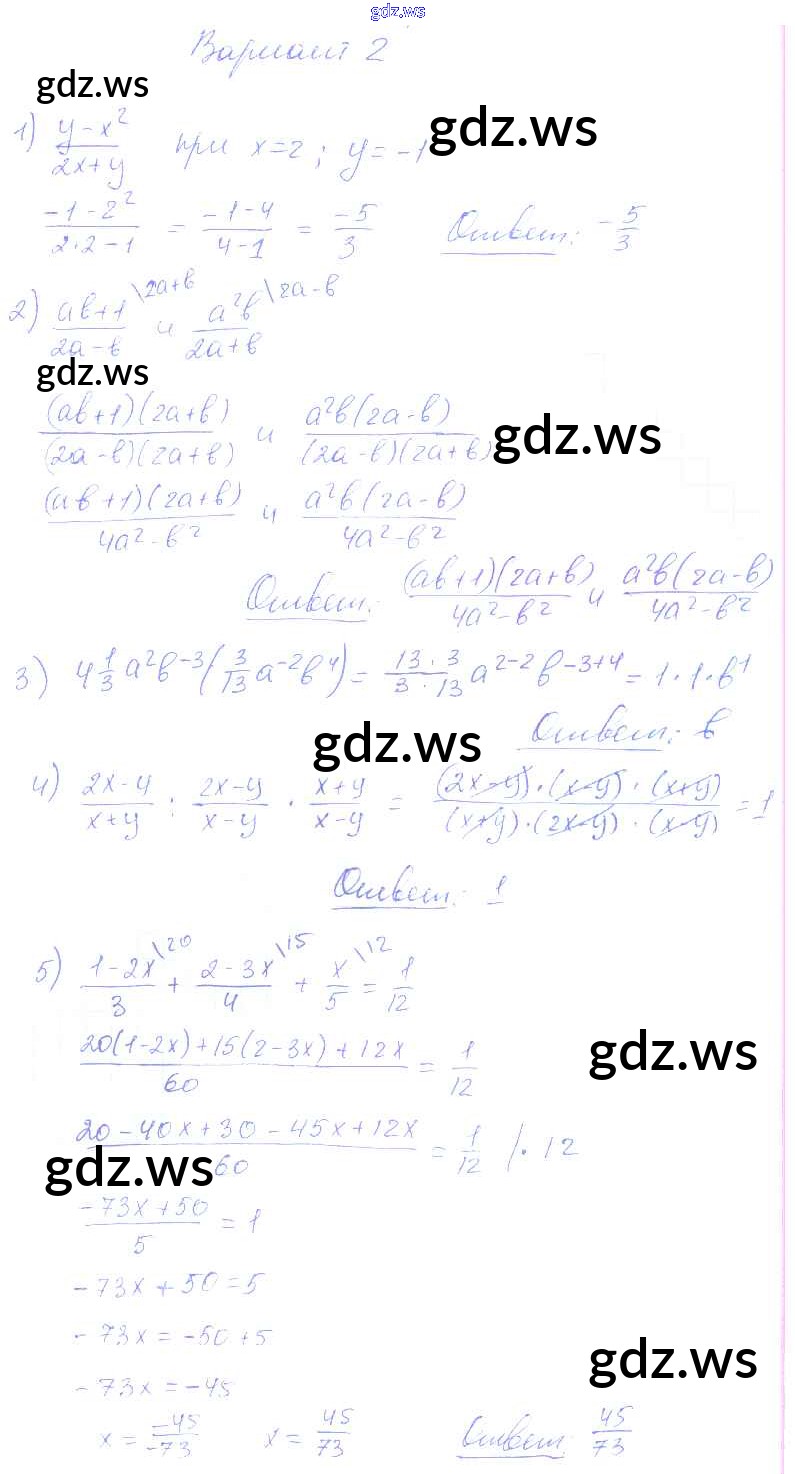 gdz.ws
Вариант 2
gdz.ws
1) (y-x²)/(2x+y) при x=2; y=-1
gdz.ws
(-1-2²)/(2·2-1) = (-1-4)/(4-1) = -5/3 Ответ: -5/3
2) (ab+1)/(2a-b) \2a+b и a²b/(2a+b) \2a-b
gdz.ws
((ab+1)(2a+b))/((2a-b)(2a+b)) и (a²b(2a-b))/((2a-b)(2a+b))
gdz.ws
((ab+1)(2a+b))/(4a²-b²) и (a²b(2a-b))/(4a²-b²)
Ответ: ((ab+1)(2a+b))/(4a²-b²) и (a²b(2a-b))/(4a²-b²)
3) 4 1/3 a²b⁻³(3/13 a⁻²b⁴) = (13·3)/(3·13) a²⁻²b⁻³⁺⁴ = 1·1·b¹
Ответ: b
gdz.ws
4) (2x-y)/(x+y) : (2x-y)/(x-y) · (x+y)/(x-y) = ((2x-y)·(x-y)·(x+y))/((x+y)·(2x-y)·(x-y)) = 1
Ответ: 1
5) (1-2x)/3 \20 + (2-3x)/4 \15 + x/5 \12 = 1/12
(20(1-2x)+15(2-3x)+12x)/60 = 1/12
gdz.ws
(20-40x+30-45x+12x)/60 = 1/12 |·12
gdz.ws
(-73x+50)/5 = 1
-73x+50=5
-73x=-50+5
gdz.ws
-73x=-45
x = -45/-73 x = 45/73 Ответ: 45/73